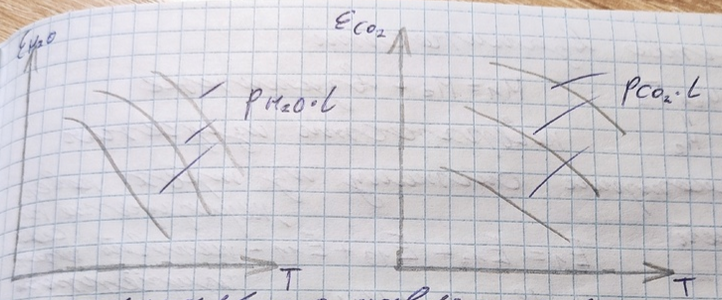 εH₂O
PH₂O·L
T
εCO₂
PCO₂·L
T